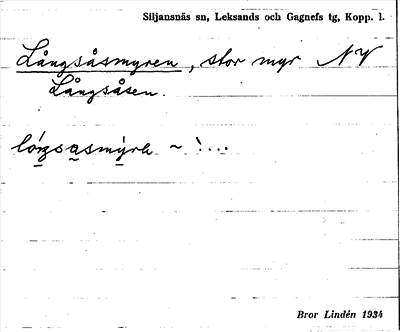 Siljansnäs sn, Leksands och Gagnefs tg, Kopp. l.
Långsåsmyren, stor myr NV
Långsåsen.
~ `...
Bror Lindén 1934